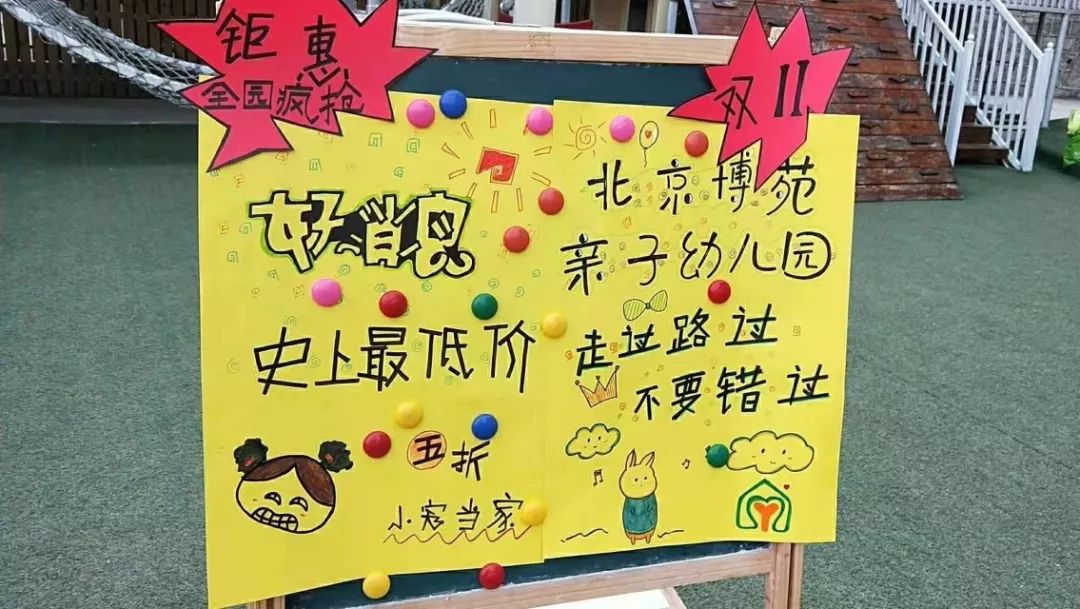 钜惠
全园疯抢
双11
好消息
史上最低价
五折
小宠当家
北京博苑
亲子幼儿园
走过路过
不要错过